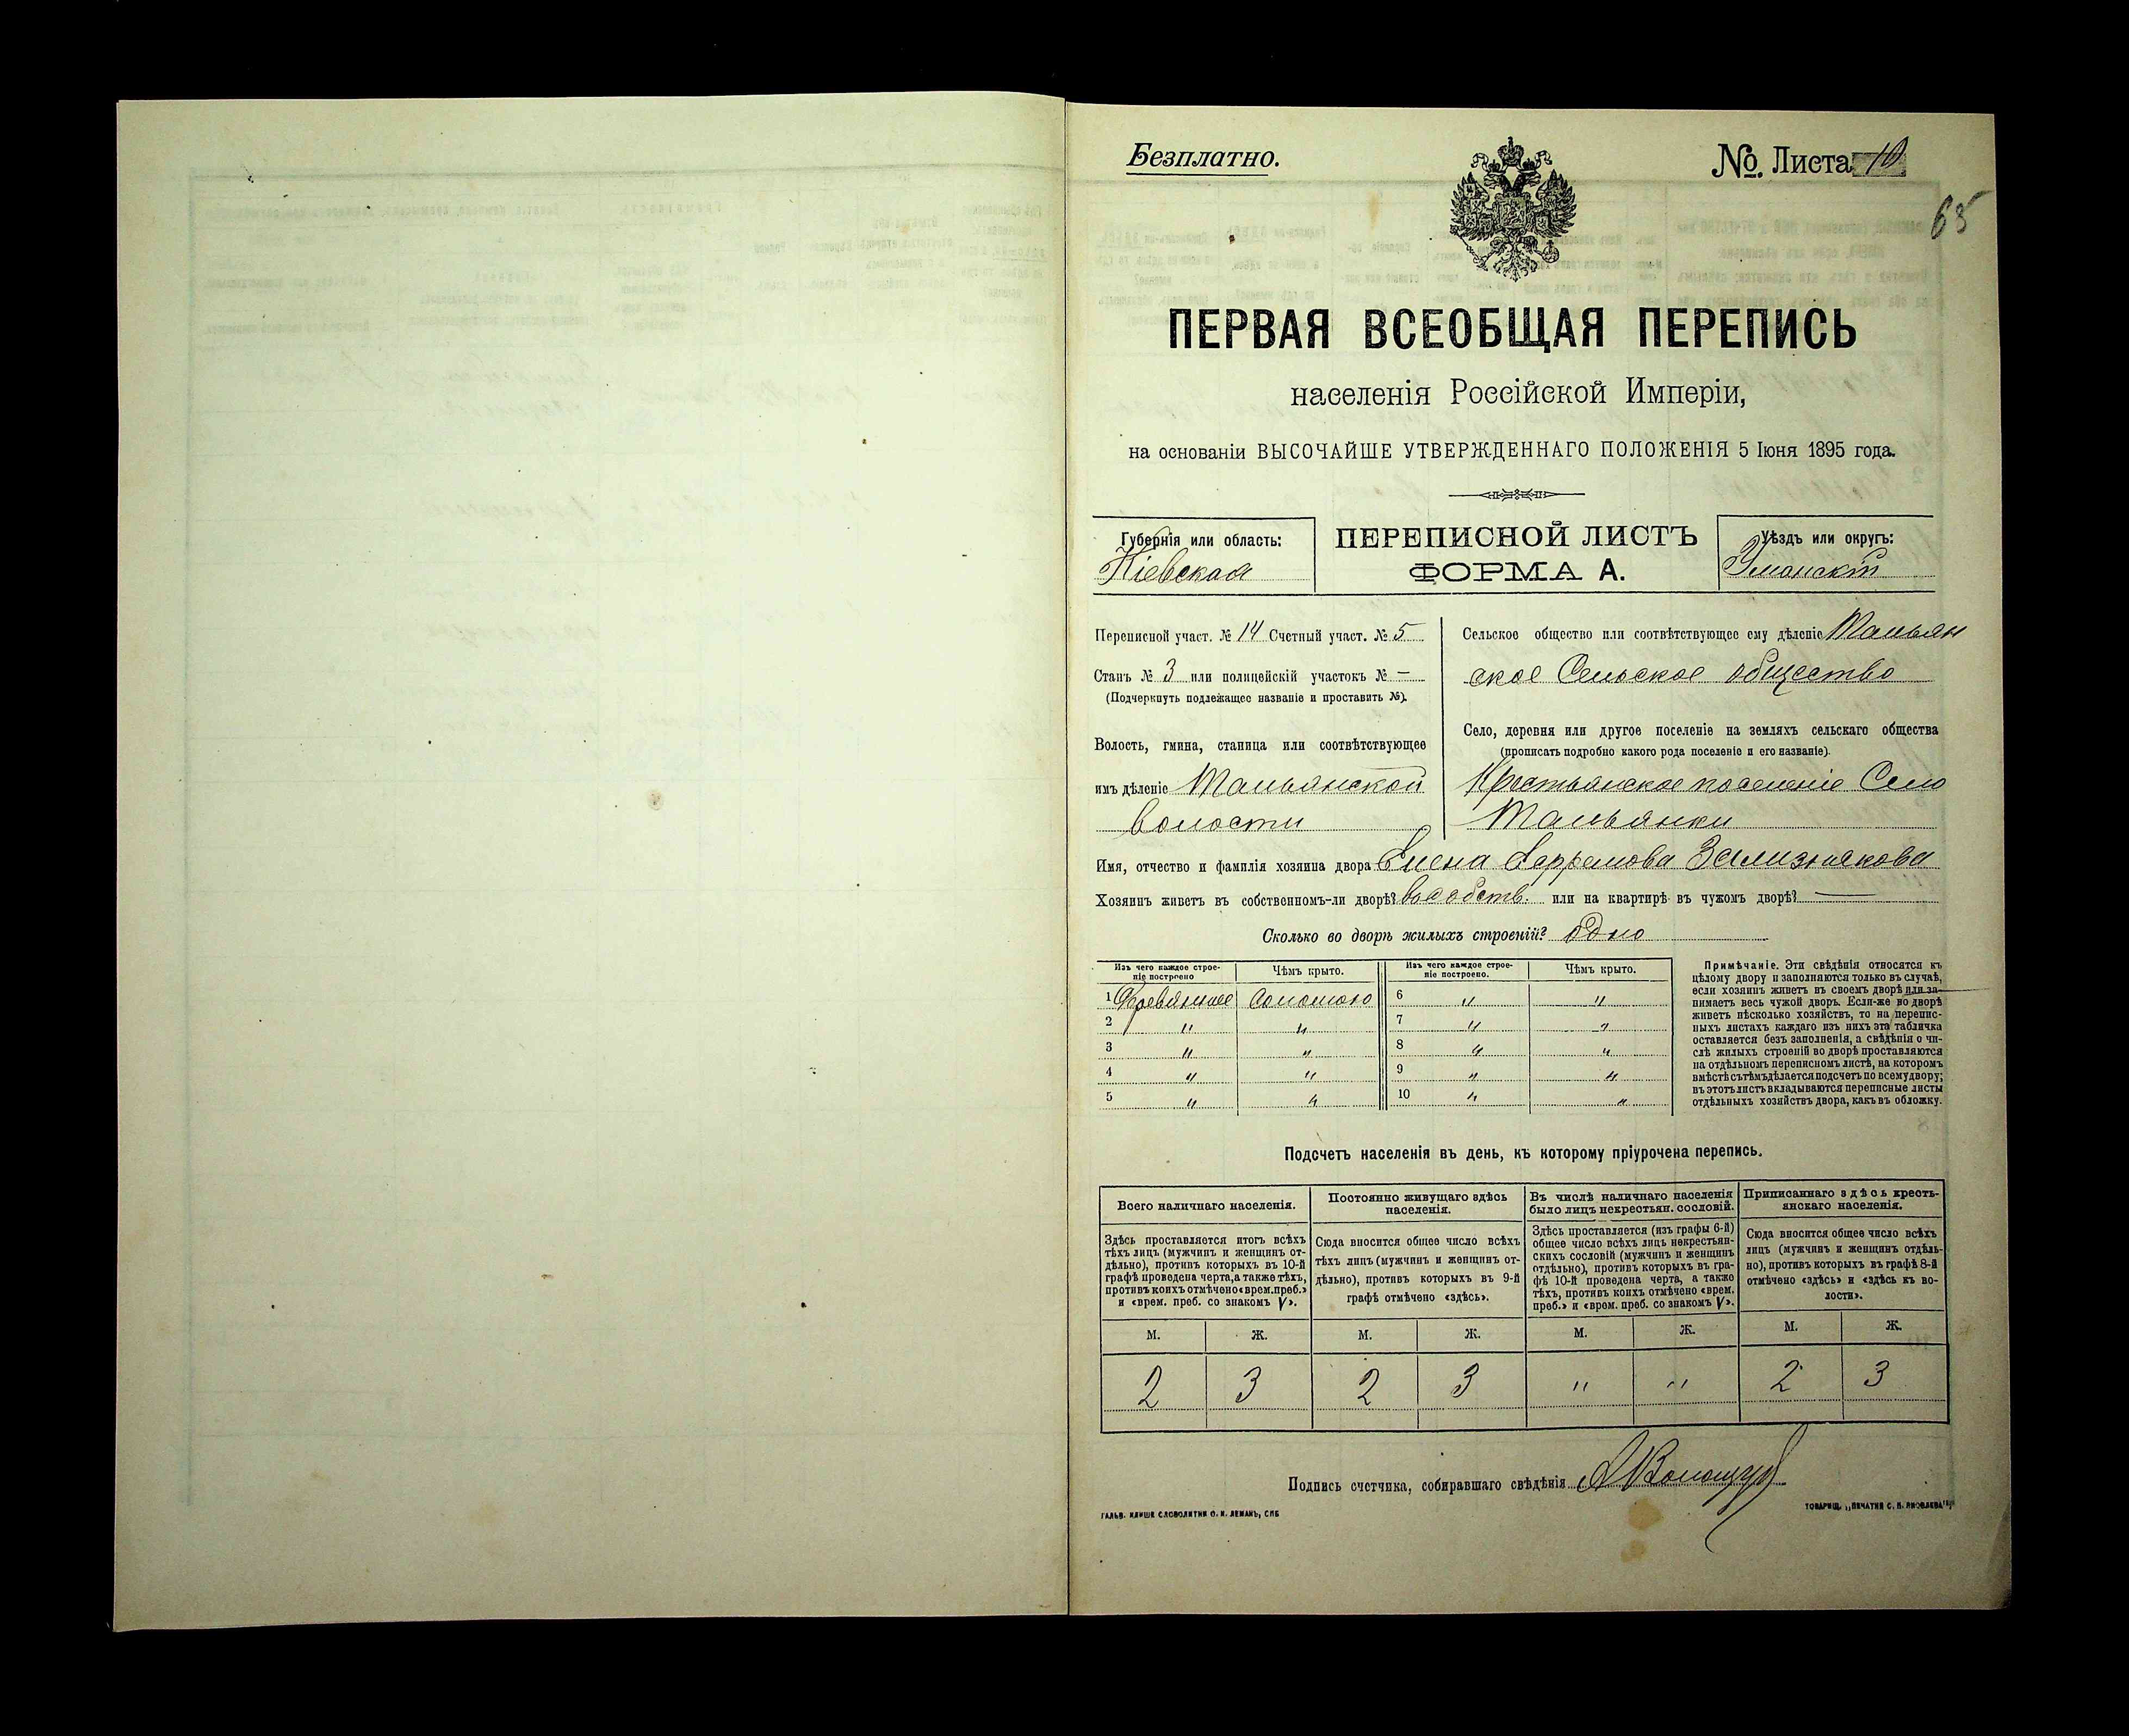 Безплатно.
№. Листа 10
65
ПЕРВАЯ ВСЕОБЩАЯ ПЕРЕПИСЬ
населенія Россійской Имперіи,
на основаніи ВЫСОЧАЙШЕ УТВЕРЖДЕННАГО ПОЛОЖЕНІЯ 5 Іюня 1895 года.
Губернія или область:
Кіевская
ПЕРЕПИСНОЙ ЛИСТЪ
ФОРМА А.
Уѣздъ или округъ:
Уманскій
Переписной участ. № 14 Счетный участ. № 5
Станъ № 3 или полицейскій участокъ № —
(Подчеркнуть подлежащее названіе и проставить №).
Волость, гмина, станица или соотвѣтствующее
имъ дѣленіе Тальянской
волости
Сельское общество или соотвѣтствующее ему дѣленіе Тальян
ское Сельское общество
Село, деревня или другое поселеніе на земляхъ сельскаго общества
(прописать подробно какого рода поселеніе и его названіе).
Крестьянское поселеніе Село
Тальянки
Имя, отчество и фамилія хозяина двора Елена Ефремова Зализнякова
Хозяинъ живетъ въ собственномъ-ли дворѣ? въ собств. или на квартирѣ въ чужомъ дворѣ? —
Сколько во дворѣ жилыхъ строеній? Одно
Изъ чего каждое строе-
ніе построено
Чѣмъ крыто.
Изъ чего каждое строе-
ніе построено.
Чѣмъ крыто.
1 Деревянное Соломою 6 " "
2 " " 7 " "
3 " " 8 " "
4 " " 9 " "
5 " " 10 " "
Примѣчаніе. Эти свѣдѣнія относятся къ
цѣлому двору и заполняются только въ случаѣ,
если хозяинъ живетъ въ своемъ дворѣ или за-
нимаетъ весь чужой дворъ. Если-же во дворѣ
живетъ нѣсколько хозяйствъ, то на перепис-
ныхъ листахъ каждаго изъ нихъ эта табличка
оставляется безъ заполненія, а свѣдѣнія о чи-
слѣ жилыхъ строеній во дворѣ проставляются
на отдѣльномъ переписномъ листѣ, на которомъ
вмѣстѣ съ тѣмъ дѣлается подсчетъ по всему двору;
въ этотъ листъ вкладываются переписные листы
отдѣльныхъ хозяйствъ двора, какъ въ обложку.
Подсчетъ населенія въ день, къ которому пріурочена перепись.
Всего наличнаго населенія.
Здѣсь проставляется итогъ всѣхъ
тѣхъ лицъ (мужчинъ и женщинъ от-
дѣльно), противъ которыхъ въ 10-й
графѣ проведена черта, а также тѣхъ,
противъ коихъ отмѣчено «врем. преб.»
и «врем. преб. со знакомъ V».
Постоянно живущаго здѣсь
населенія.
Сюда вносится общее число всѣхъ
тѣхъ лицъ (мужчинъ и женщинъ от-
дѣльно), противъ которыхъ въ 9-й
графѣ отмѣчено «здѣсь».
Въ числѣ наличнаго населенія
было лицъ некрестьян. сословій.
Здѣсь проставляется (изъ графы 6-й)
общее число всѣхъ лицъ некрестьян-
скихъ сословій (мужчинъ и женщинъ
отдѣльно), противъ которыхъ въ гра-
фѣ 10-й проведена черта, а также
тѣхъ, противъ коихъ отмѣчено «врем.
преб.» и «врем. преб. со знакомъ V».
Приписаннаго здѣсь кресть-
янскаго населенія.
Сюда вносится общее число всѣхъ
лицъ (мужчинъ и женщинъ отдѣль-
но), противъ которыхъ въ графѣ 8-й
отмѣчено «здѣсь» и «здѣсь къ во-
лости».
М. Ж. М. Ж. М. Ж. М. Ж.
2 3 2 3 " " 2 3
Подпись счетчика, собиравшаго свѣдѣнія
ГАЛЬВ. КЛИШЕ СЛОВОЛИТНИ О. И. ЛЕМАНЪ, СПБ
ТОВАРИЩ. „ПЕЧАТНЯ С. П. ЯКОВЛЕВА"